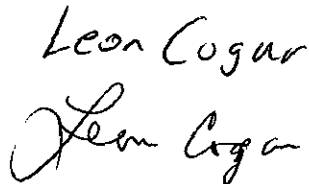 Leon Cogar
Leon Cogar